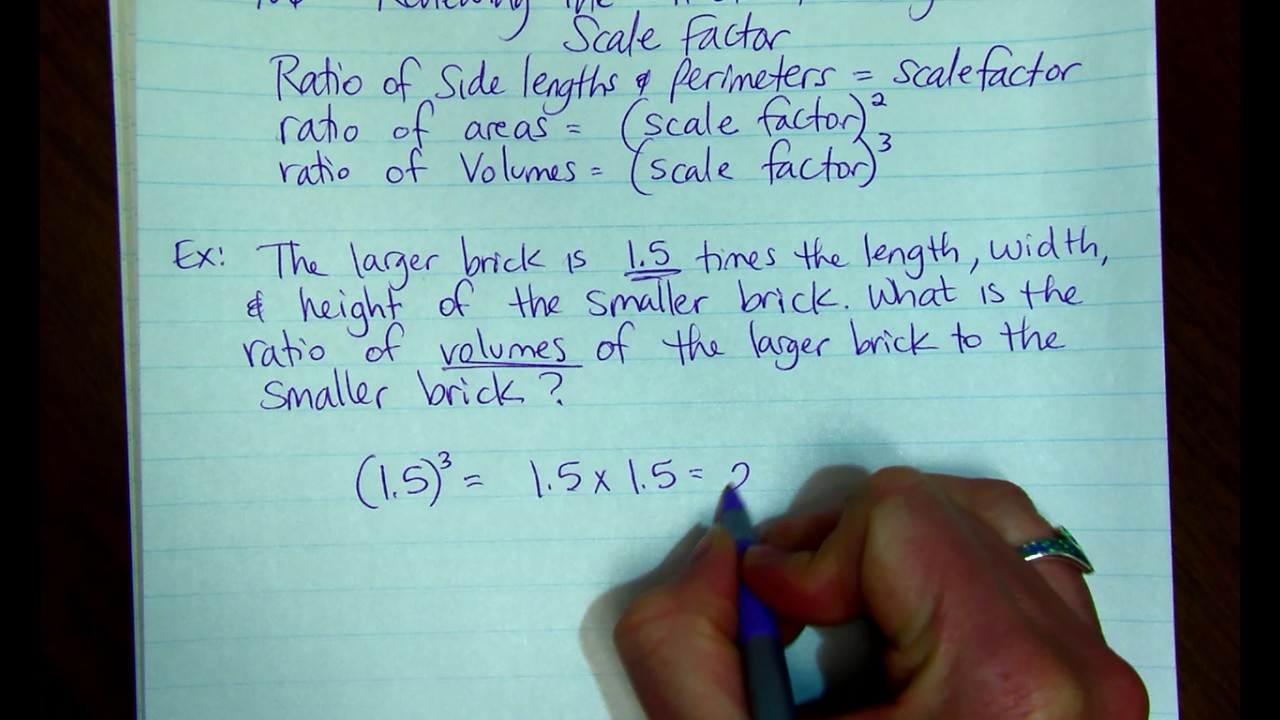 Reviewing the
Scale Factor
Ratio of Side lengths & Perimeters = scalefactor
ratio of areas = (scale factor)²
ratio of Volumes = (scale factor)³
Ex: The larger brick is 1.5 times the length, width,
& height of the smaller brick. What is the
ratio of volumes of the larger brick to the
smaller brick?
(1.5)³ = 1.5 x 1.5 = 2